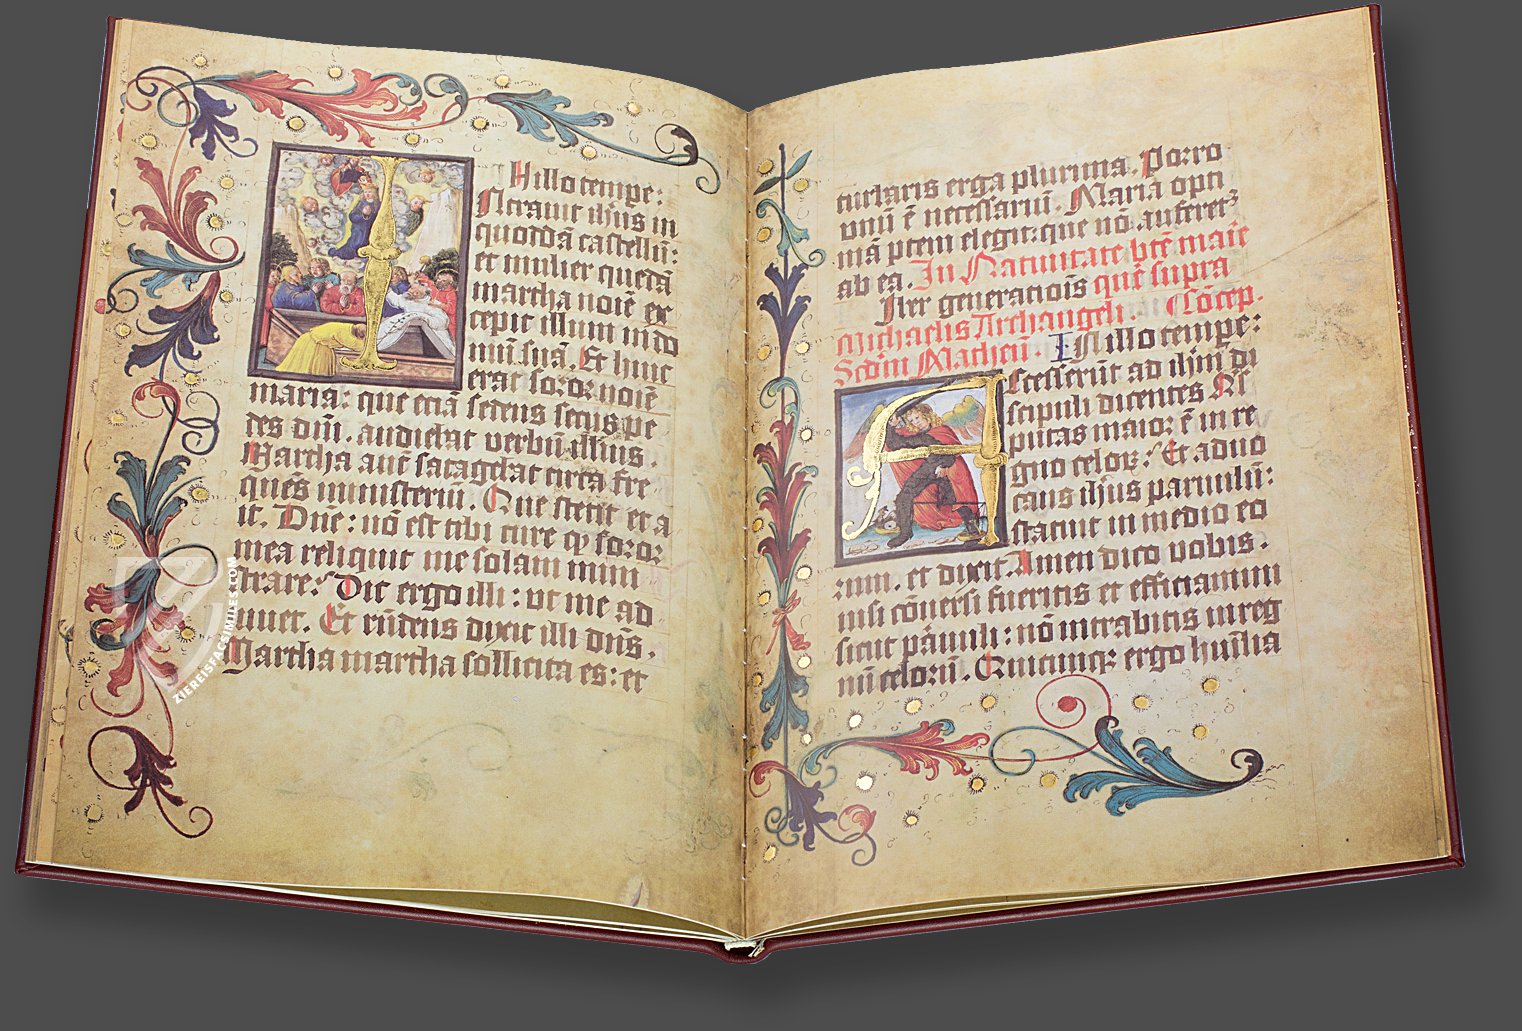 N illo tempe:
Intrauit ih̄us in
quoddā castellū:
et mulier quedā
martha noīe ex
cepit illum in do
mū suā. Et huic
erat soror noīe
maria: que etiā sedens secus pe
des dn̄i. audiebat verbū illius.
Martha aut̄ satagebat circa fre
quēs ministeriū. Que stetit et a
it. Dn̄e: nō est tibi cure ꝙ soror
mea reliquit me solam mini
strare? Dic ergo illi: vt me ad
iuuet. Et rn̄dens dixit illi dn̄s.
Martha martha sollicita es: et
ZIEREISFACSIMILES.COM
turbaris erga plurima. Porro
vnū ē necessariū. Maria opti
mā ptem elegit: que nō auferet᷑
ab ea. In Natiuitate bt̄e marie
Liber generatiōis quē supra
Michaelis Archangeli. Scd̄m Matheū. In illo tempe:
Accesserūt ad ih̄m di
scipuli dicentes Qͥs
putas maior ē in re
gno celoꝝ? Et aduo
cans ih̄us paruulū:
statuit in medio eo
rum. et dixit. Amen dico vobis.
nisi cōuersi fueritis et efficiamini
sicut pāuuli: nō intrabitis in reg
nū celorū. Quicunqꝫ ergo huīlia